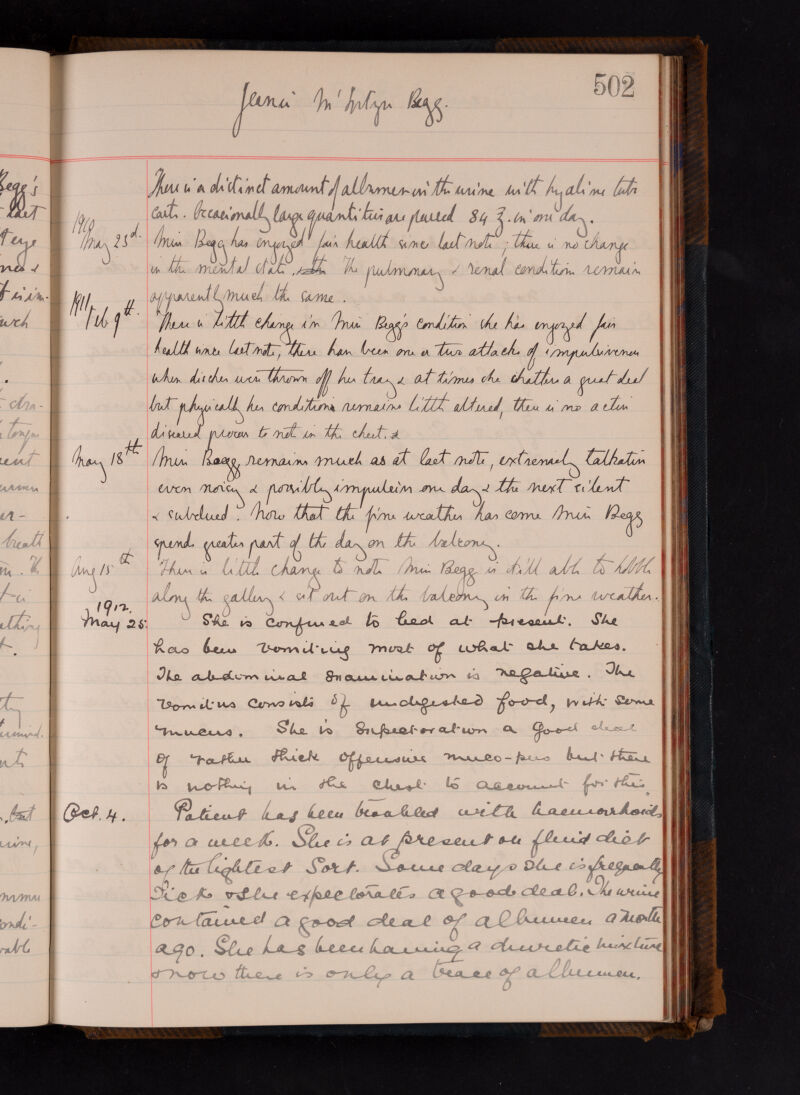 502
Jeanie McIntyre Begg.
There is a distinct amount of albumen in the urine with hyaline tube
casts. Occasionally large quantities are passed 84 ℥. in one day.
1910
May 23d. Miss Begg has enjoyed fair health since last note; there is no change
in the mental state, The pulmonary & renal condition remain
apparently much the same.
1911
Feb 9th. There is little change in Miss Begg's condition she has enjoyed fair
health since last note, there have been one or two attacks of impulsiveness
when dishes were thrown off her tray & at times she chatters a great deal
but physically her condition remains little altered, there is no active
diseased process to note in the chest. &
May 18th Miss Begg remains much as at last note, extremely talkative
even noisy & possibly impulsive one day & the next silent
& subdued. Now that the fine weather has come Miss Begg
spends greater part of the day on the balcony.
Aug 15th There is little change to note Miss Begg is still able to hobble
along the gallery & sit out on the balcony in the fine weather.
1912.
May 25. She is confined to bed at present. She
has been vomiting most of what she takes.
The abdominal examination is negative. The
vomitus consists of undigested food, with some
mucus. She is expectoration a good deal
of rather thick offensive muco-pus but there
is nothing in the chest to account for this.
Oct. 4. Patient has been troubled with haemorrhoids
for a week. She is at present on fluid diet
of the lightest sort. Some days she is frequently
sick & she expectorates a good deal. The urine
contained a good deal of albumen a month
ago. She has been having a diuretic mixture
& now there is only a trace of albumen.